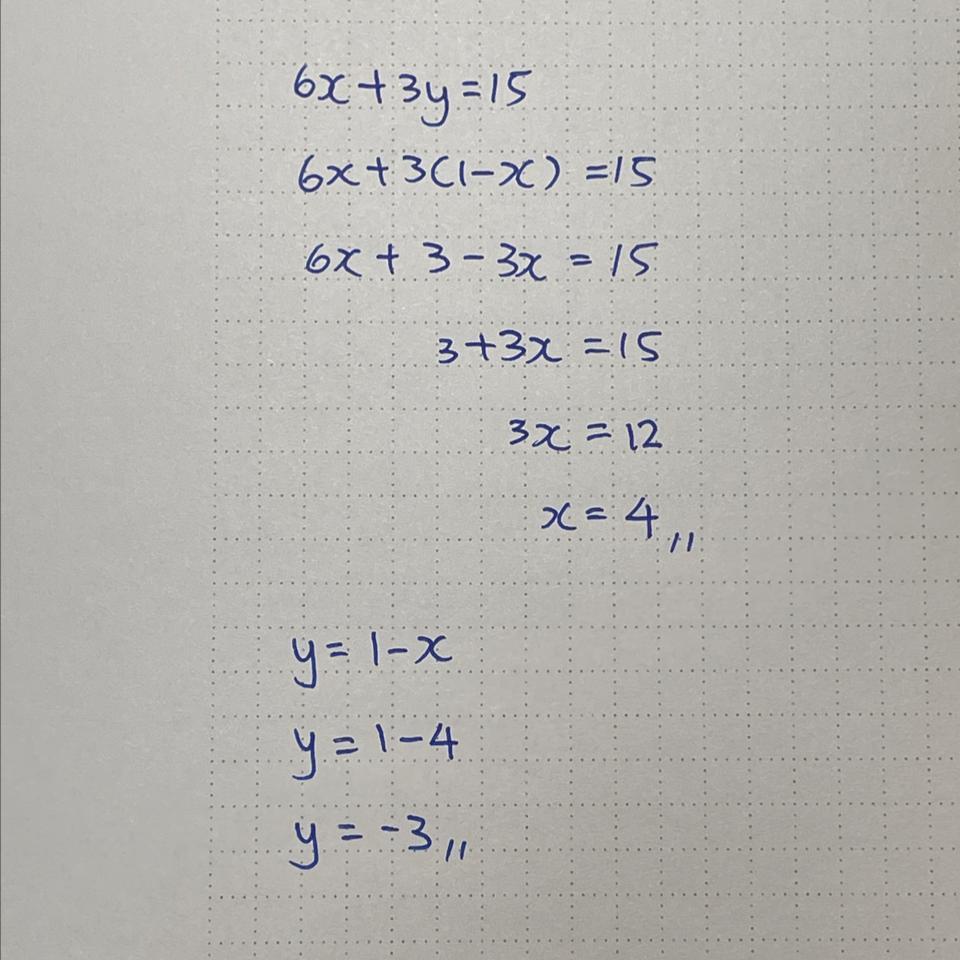 6x+3y=15
6x+3(1-x) =15
6x + 3 - 3x = 15
3+3x =15
3x = 12
x = 4 ,,
y = 1-x
y = 1-4
y = -3 ,,